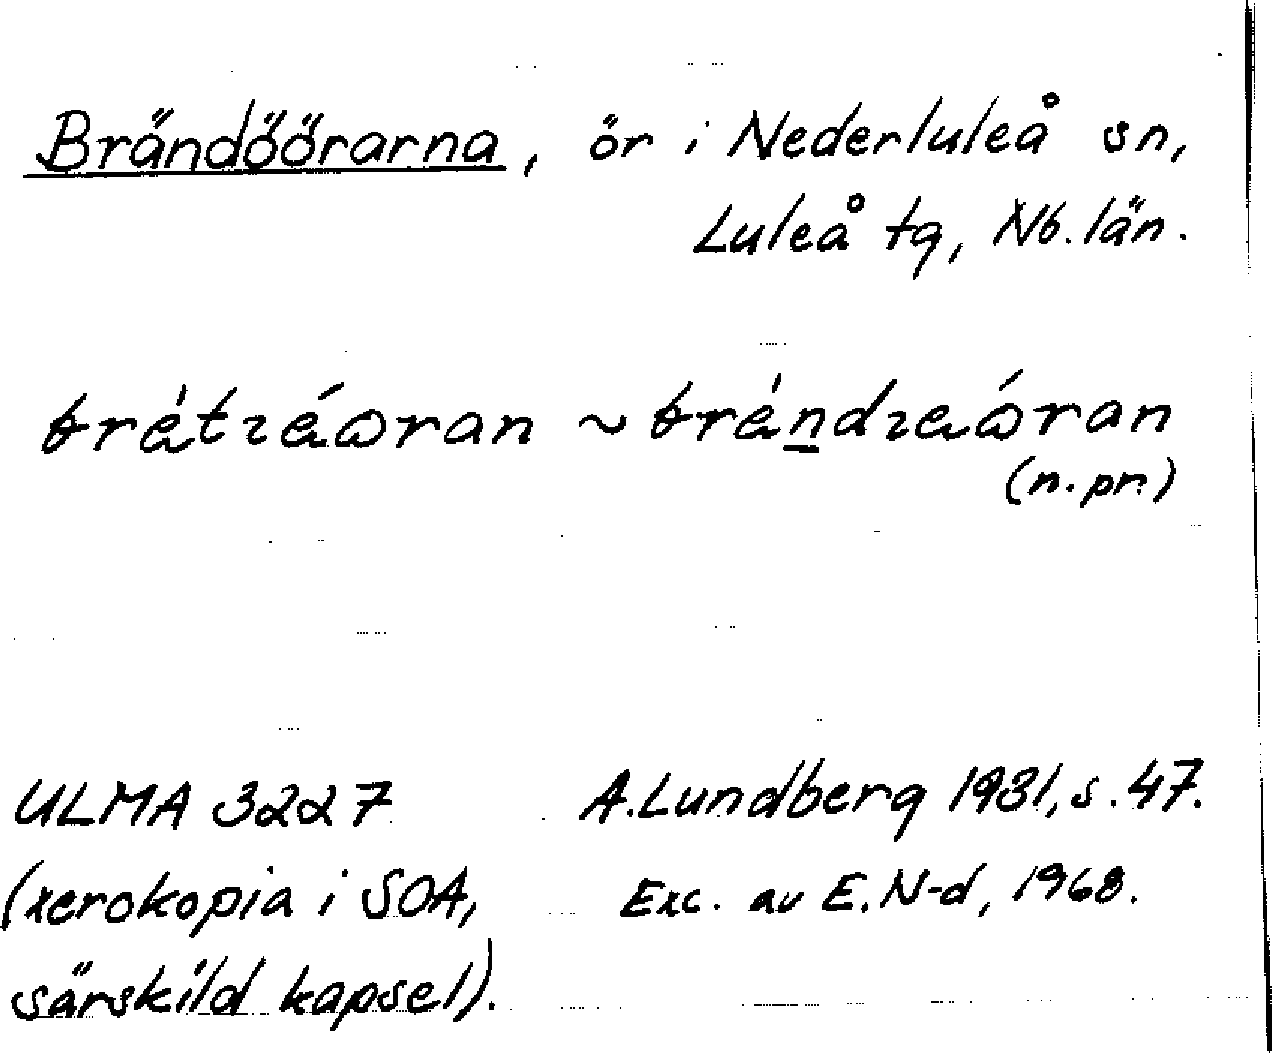 Brändöörarna, ör i Nederluleå sn,
Luleå tg, Nb. län.
(n. pr.)
ULMA 3227 A. Lundberg 1931, s. 47.
(xerokopia i SOA, Exc. av E. N-d, 1968.
särskild kapsel).